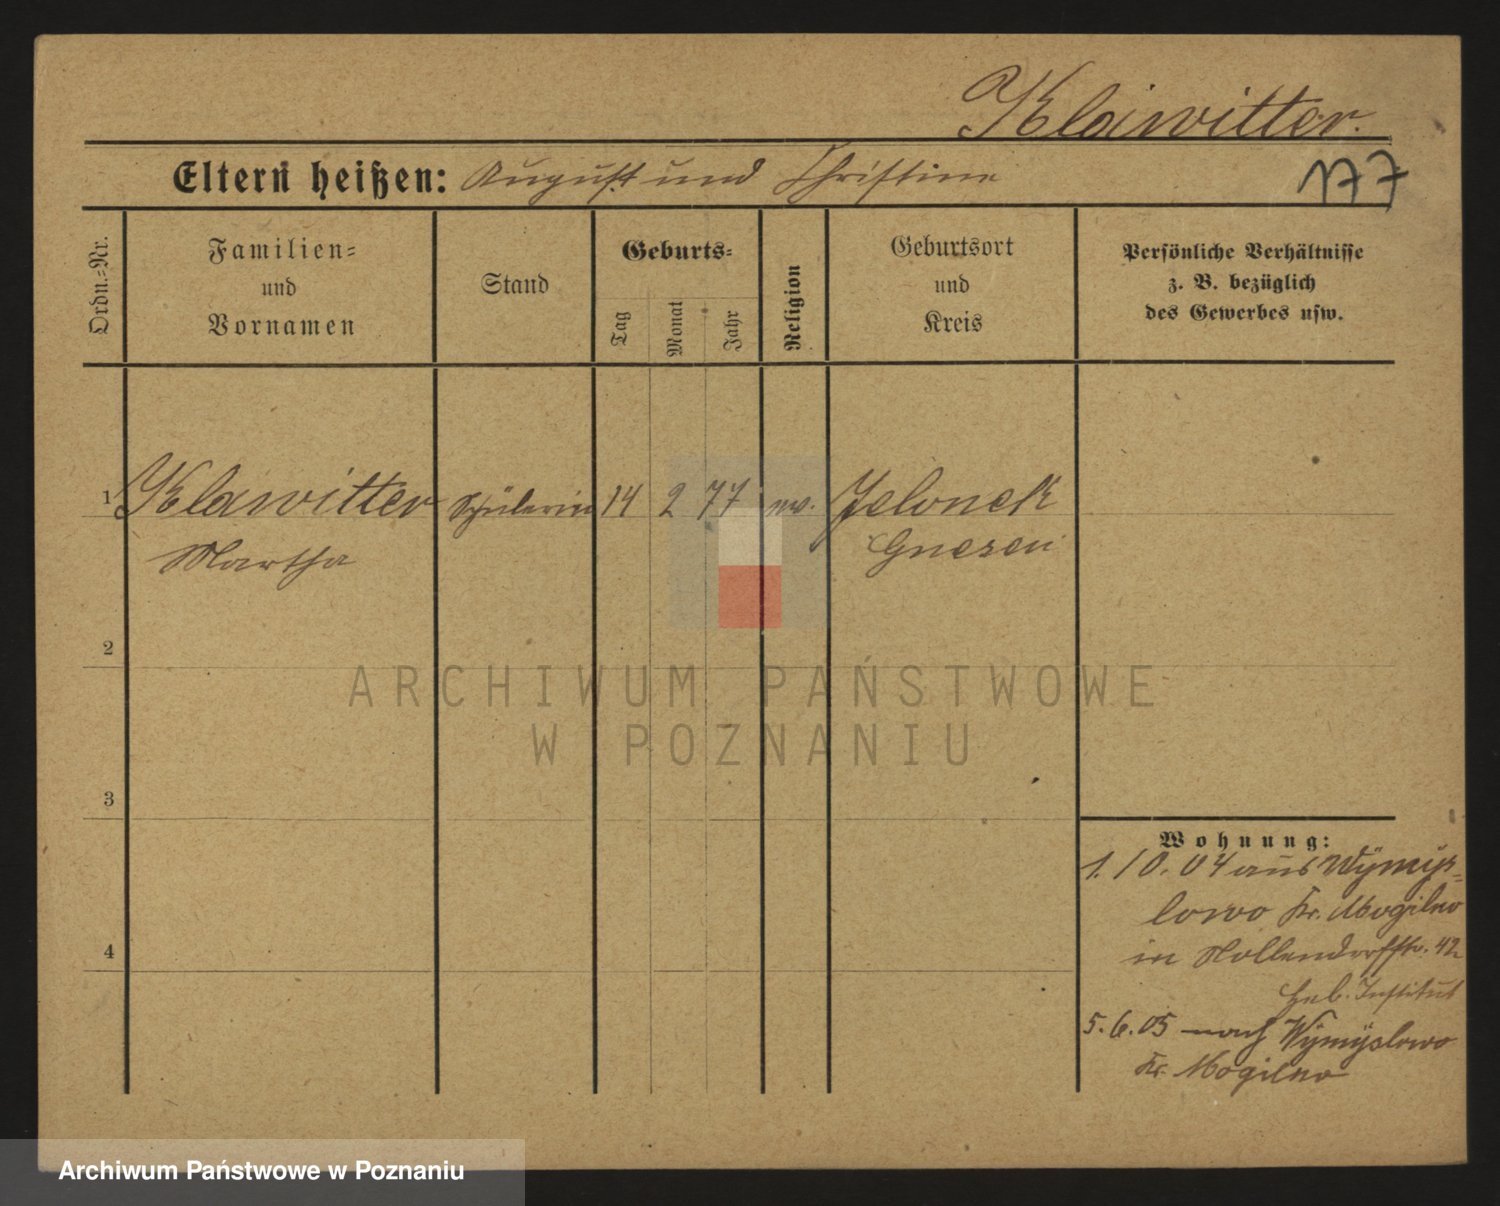 Klawitter.
Eltern heißen: August und Christine
177
Ordn.=Nr.
Familien=
und
Vornamen
Stand
Geburts=
Tag
Monat
Jahr
Religion
Geburtsort
und
Kreis
Persönliche Verhältnisse
z. B. bezüglich
des Gewerbes usw.
1 Klawitter Schülerin 14 2 77 ev. Jelonek
Martha Gnesen
2
3
4
Wohnung:
1. 10. 04 aus Wymys=
lowo Kr. Mogilno
in Nollendorfstr. 42
Institut
5. 6. 05 nach Wymyslowo
Kr. Mogilno
ARCHIWUM PAŃSTWOWE
W POZNANIU
Archiwum Państwowe w Poznaniu